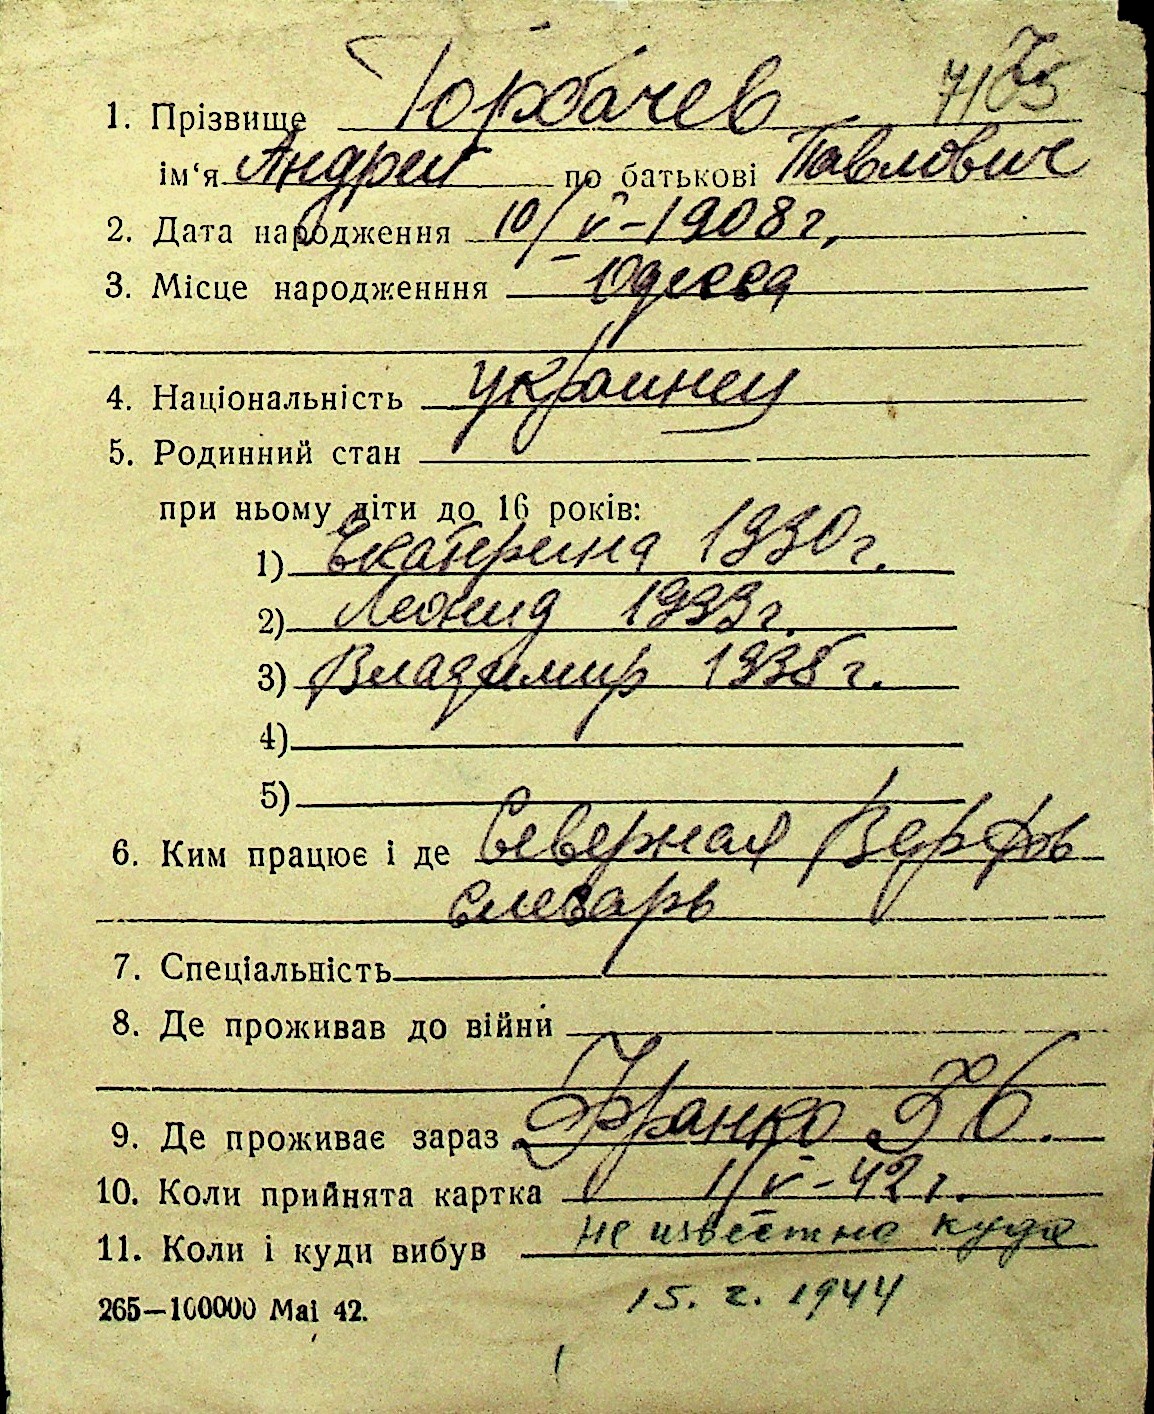 1. Прізвище Горбачев
ім‘я Андрей по батькові Павлович
2. Дата народження 10/V-1908 г.
3. Місце народженння Одесса
4. Національність украинец
5. Родинний стан
при ньому діти до 16 років:
1) Екатерина 1930 г.
2) Леонид 1933 г.
3) Владимир 1938 г.
4)
5)
6. Ким працює і де Северная Верфь
слесарь
7. Спеціальність
8. Де проживав до війни
9. Де проживає зараз Франко
10. Коли прийнята картка 1/V-42 г.
11. Коли і куди вибув не известно куда
265—100000 Mai 42. 15. 2. 1944